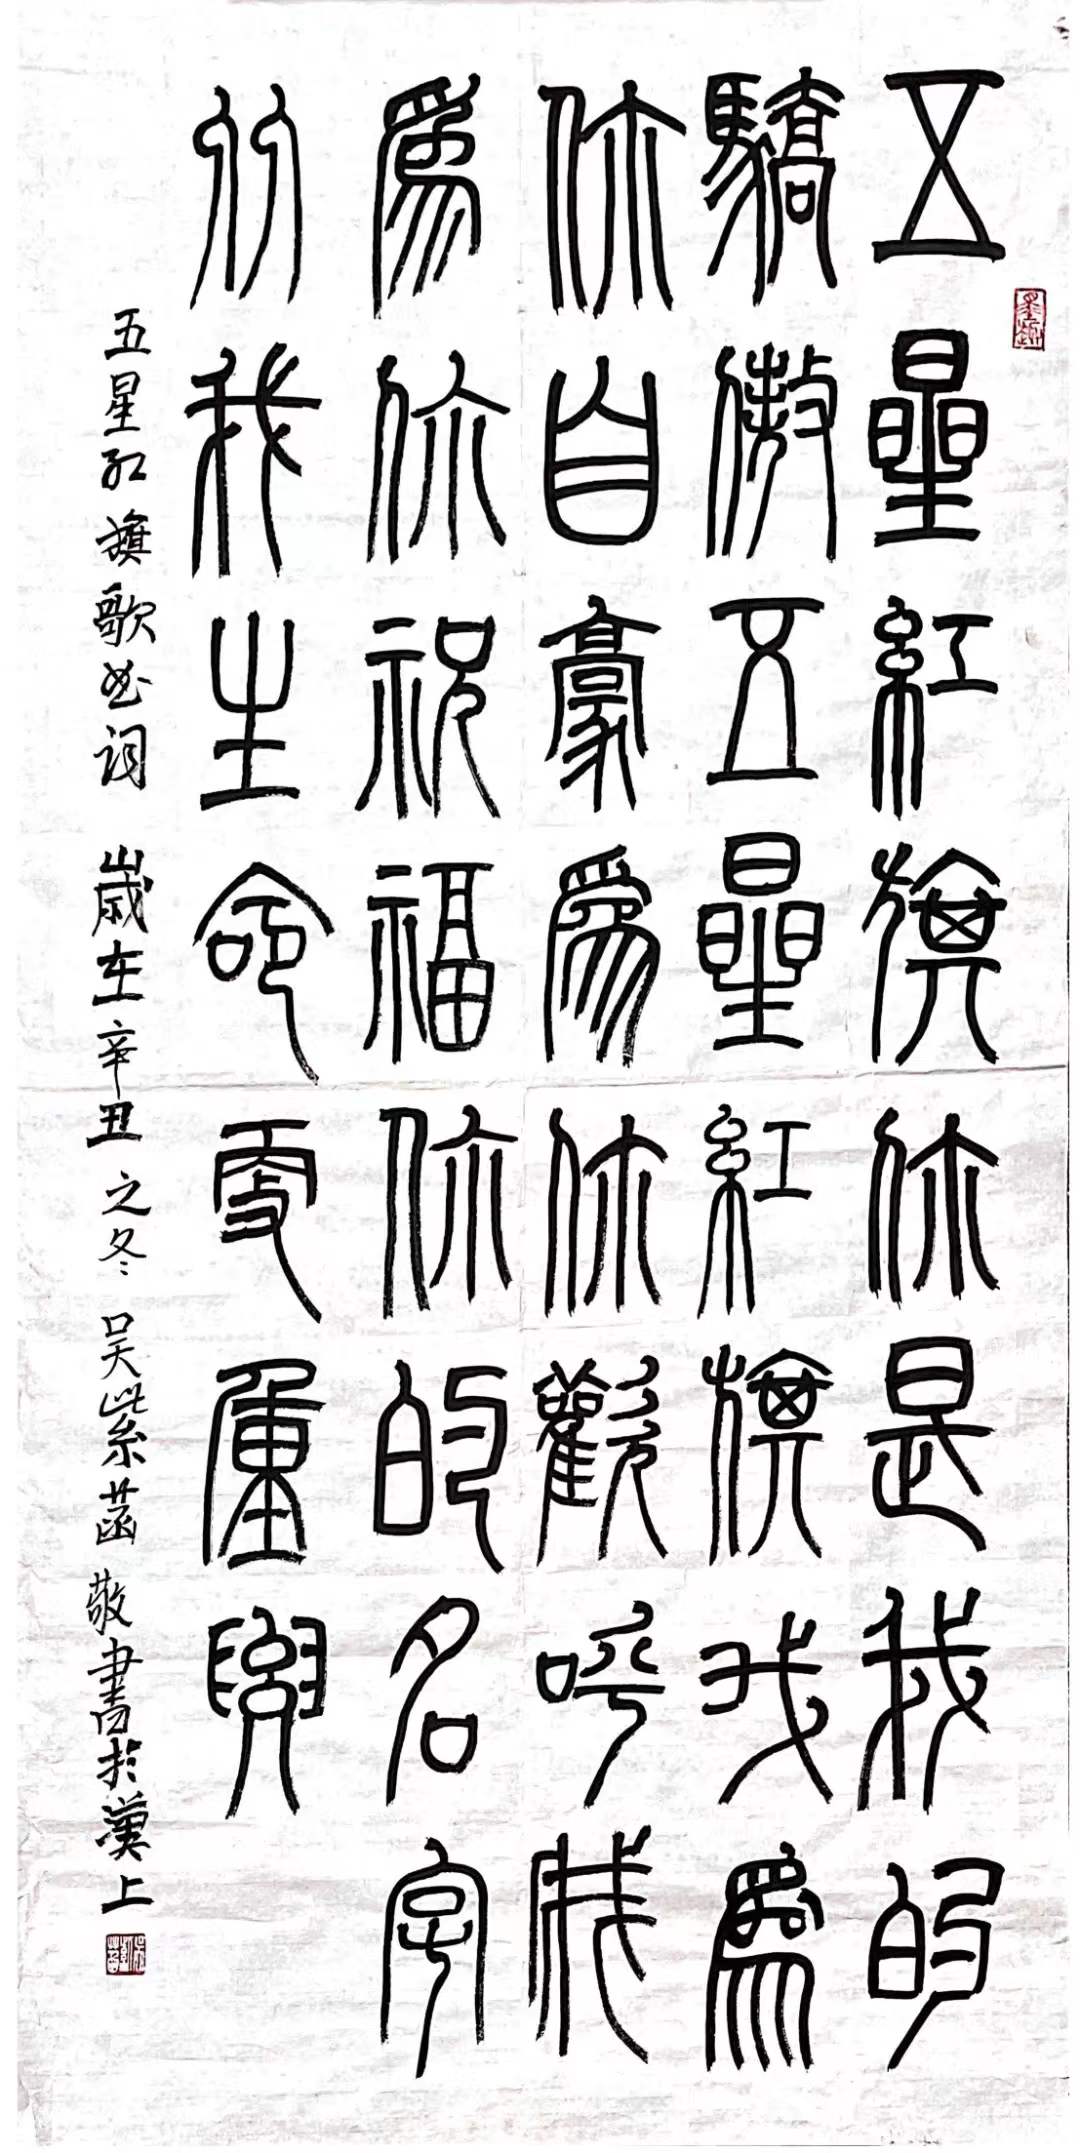 五星紅旗你是我的
驕傲五星紅旗我為
你自豪為你歡呼我
為你祝福你的名字
比我生命更重要
五星红旗歌曲词 歲在辛丑之冬 吴紫菡 敬書於漢上